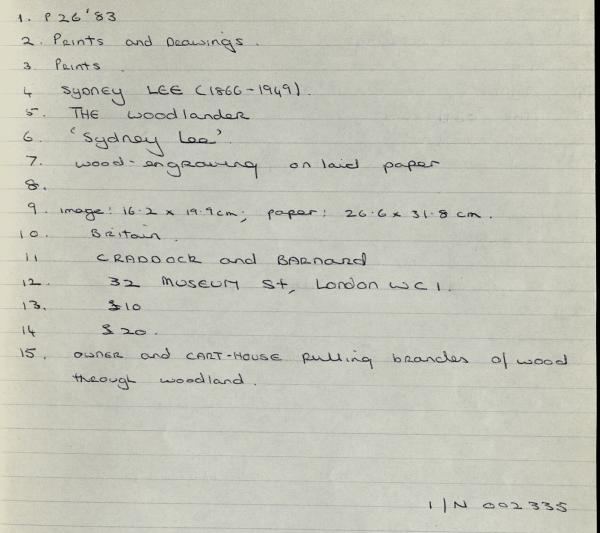 1. P 26'83
2. Prints and Drawings.
3. Prints.
4 Sydney LEE (1866-1949).
5. THE Woodlander
6. 'Sydney Lee'.
7. wood-engraving on laid paper
8.
9. image: 16.2 x 19.9cm; paper: 26.6 x 31.8 cm.
10. Britain.
11 CRADDOCK and BARNARD
12. 32 MUSEUM St, London WC1.
13. $10
14 $20.
15. OWNER and CART-HOUSE pulling branches of wood
through woodland.
1/N 002335